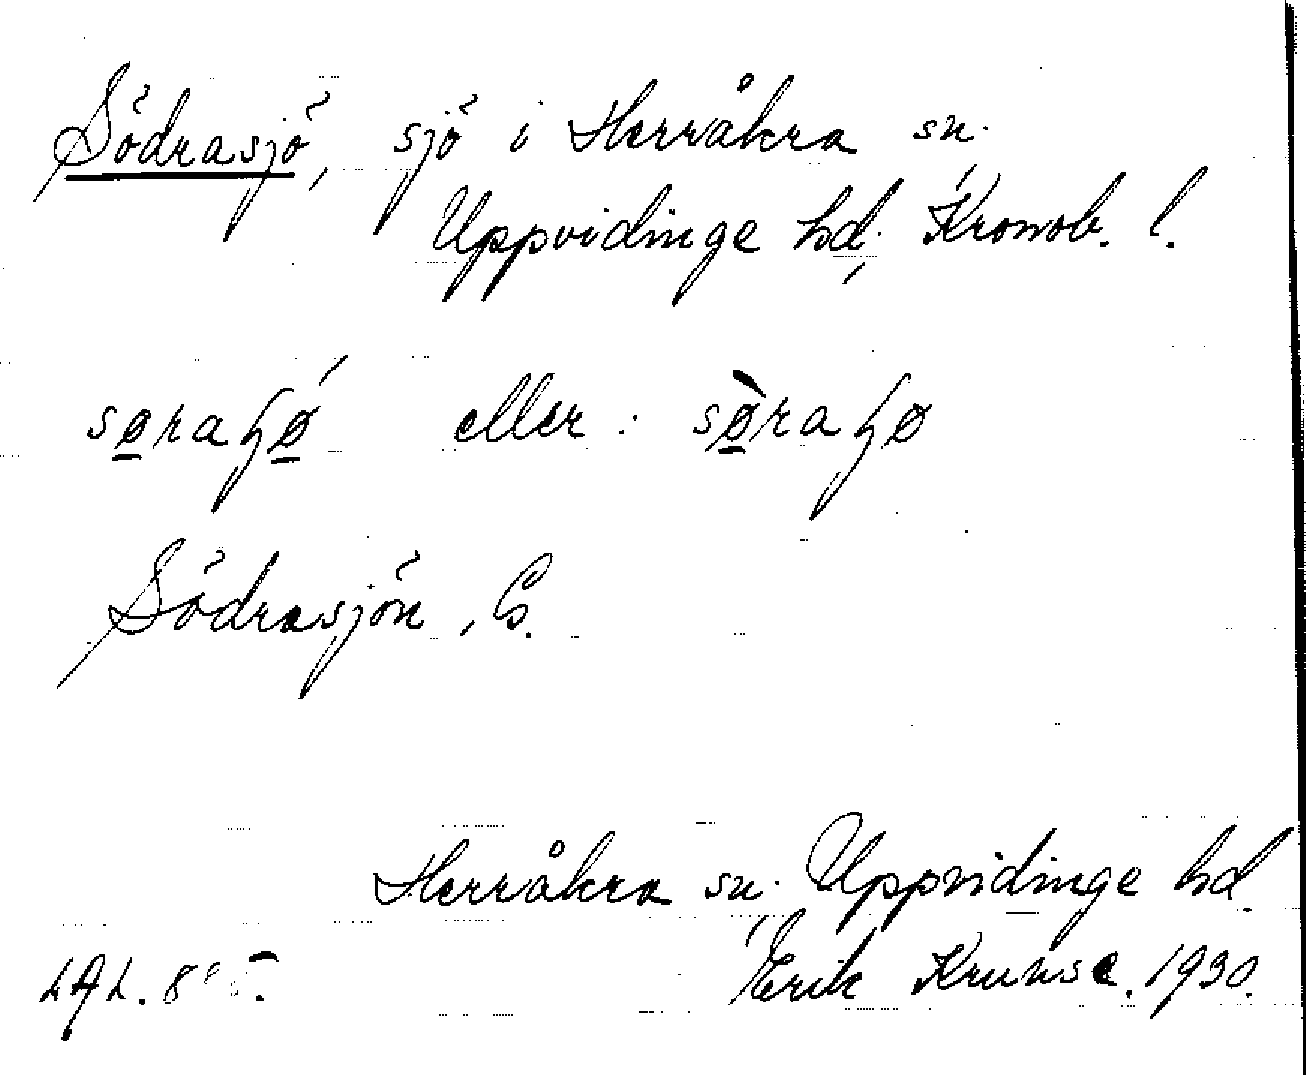 Södrasjö, sjö i Herråkra sn.
Uppvidinge hd, Kronob. l.
søraɧǿ eller: sø̀raɧø
Södrasjön, G.
Herråkra sn, Uppvidinge hd.
Erik Kruuse. 1930.
LAL.